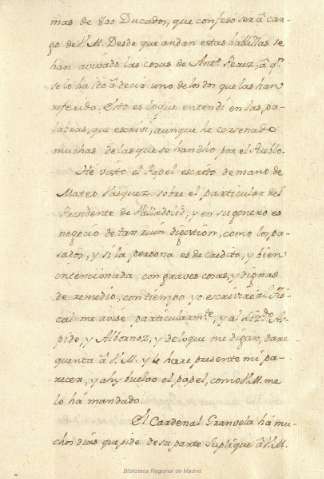 mas de 800 Ducados, que confesó será car
go de S. M. Desde que andan estas hablillas se
han las cosas de Ant.º Perez, a q.ⁿ
se lo ha ido a decir uno de los dos que las han
referido. Esto es lo que entendi en las pa-
labras, que escrivi, aunque he
muchas de las que se han dho por el Pueblo.
He visto el Papel escrito de mano de
Mateo Vasquez sobre el particular del
Presidente de Valladolid, y en su genero es
negocio de tan como los pa-
sados, y si la persona es de credito, y bien
intencionada, son graves cosas, y dignas
de remedio, con tiempo yo escrivire al Fis-
cal me avise particularm.te, y al
, y Albornoz, y de lo que me digan, dare
quenta á S. M. y le hare presente mi pa-
recer, y ahy buelvo el papel, como S. M. me
lo há mandado.
El Cardenal Granvela há mu-
chos dias que pide de su parte Suplique á S. M.
Biblioteca Regional de Madrid